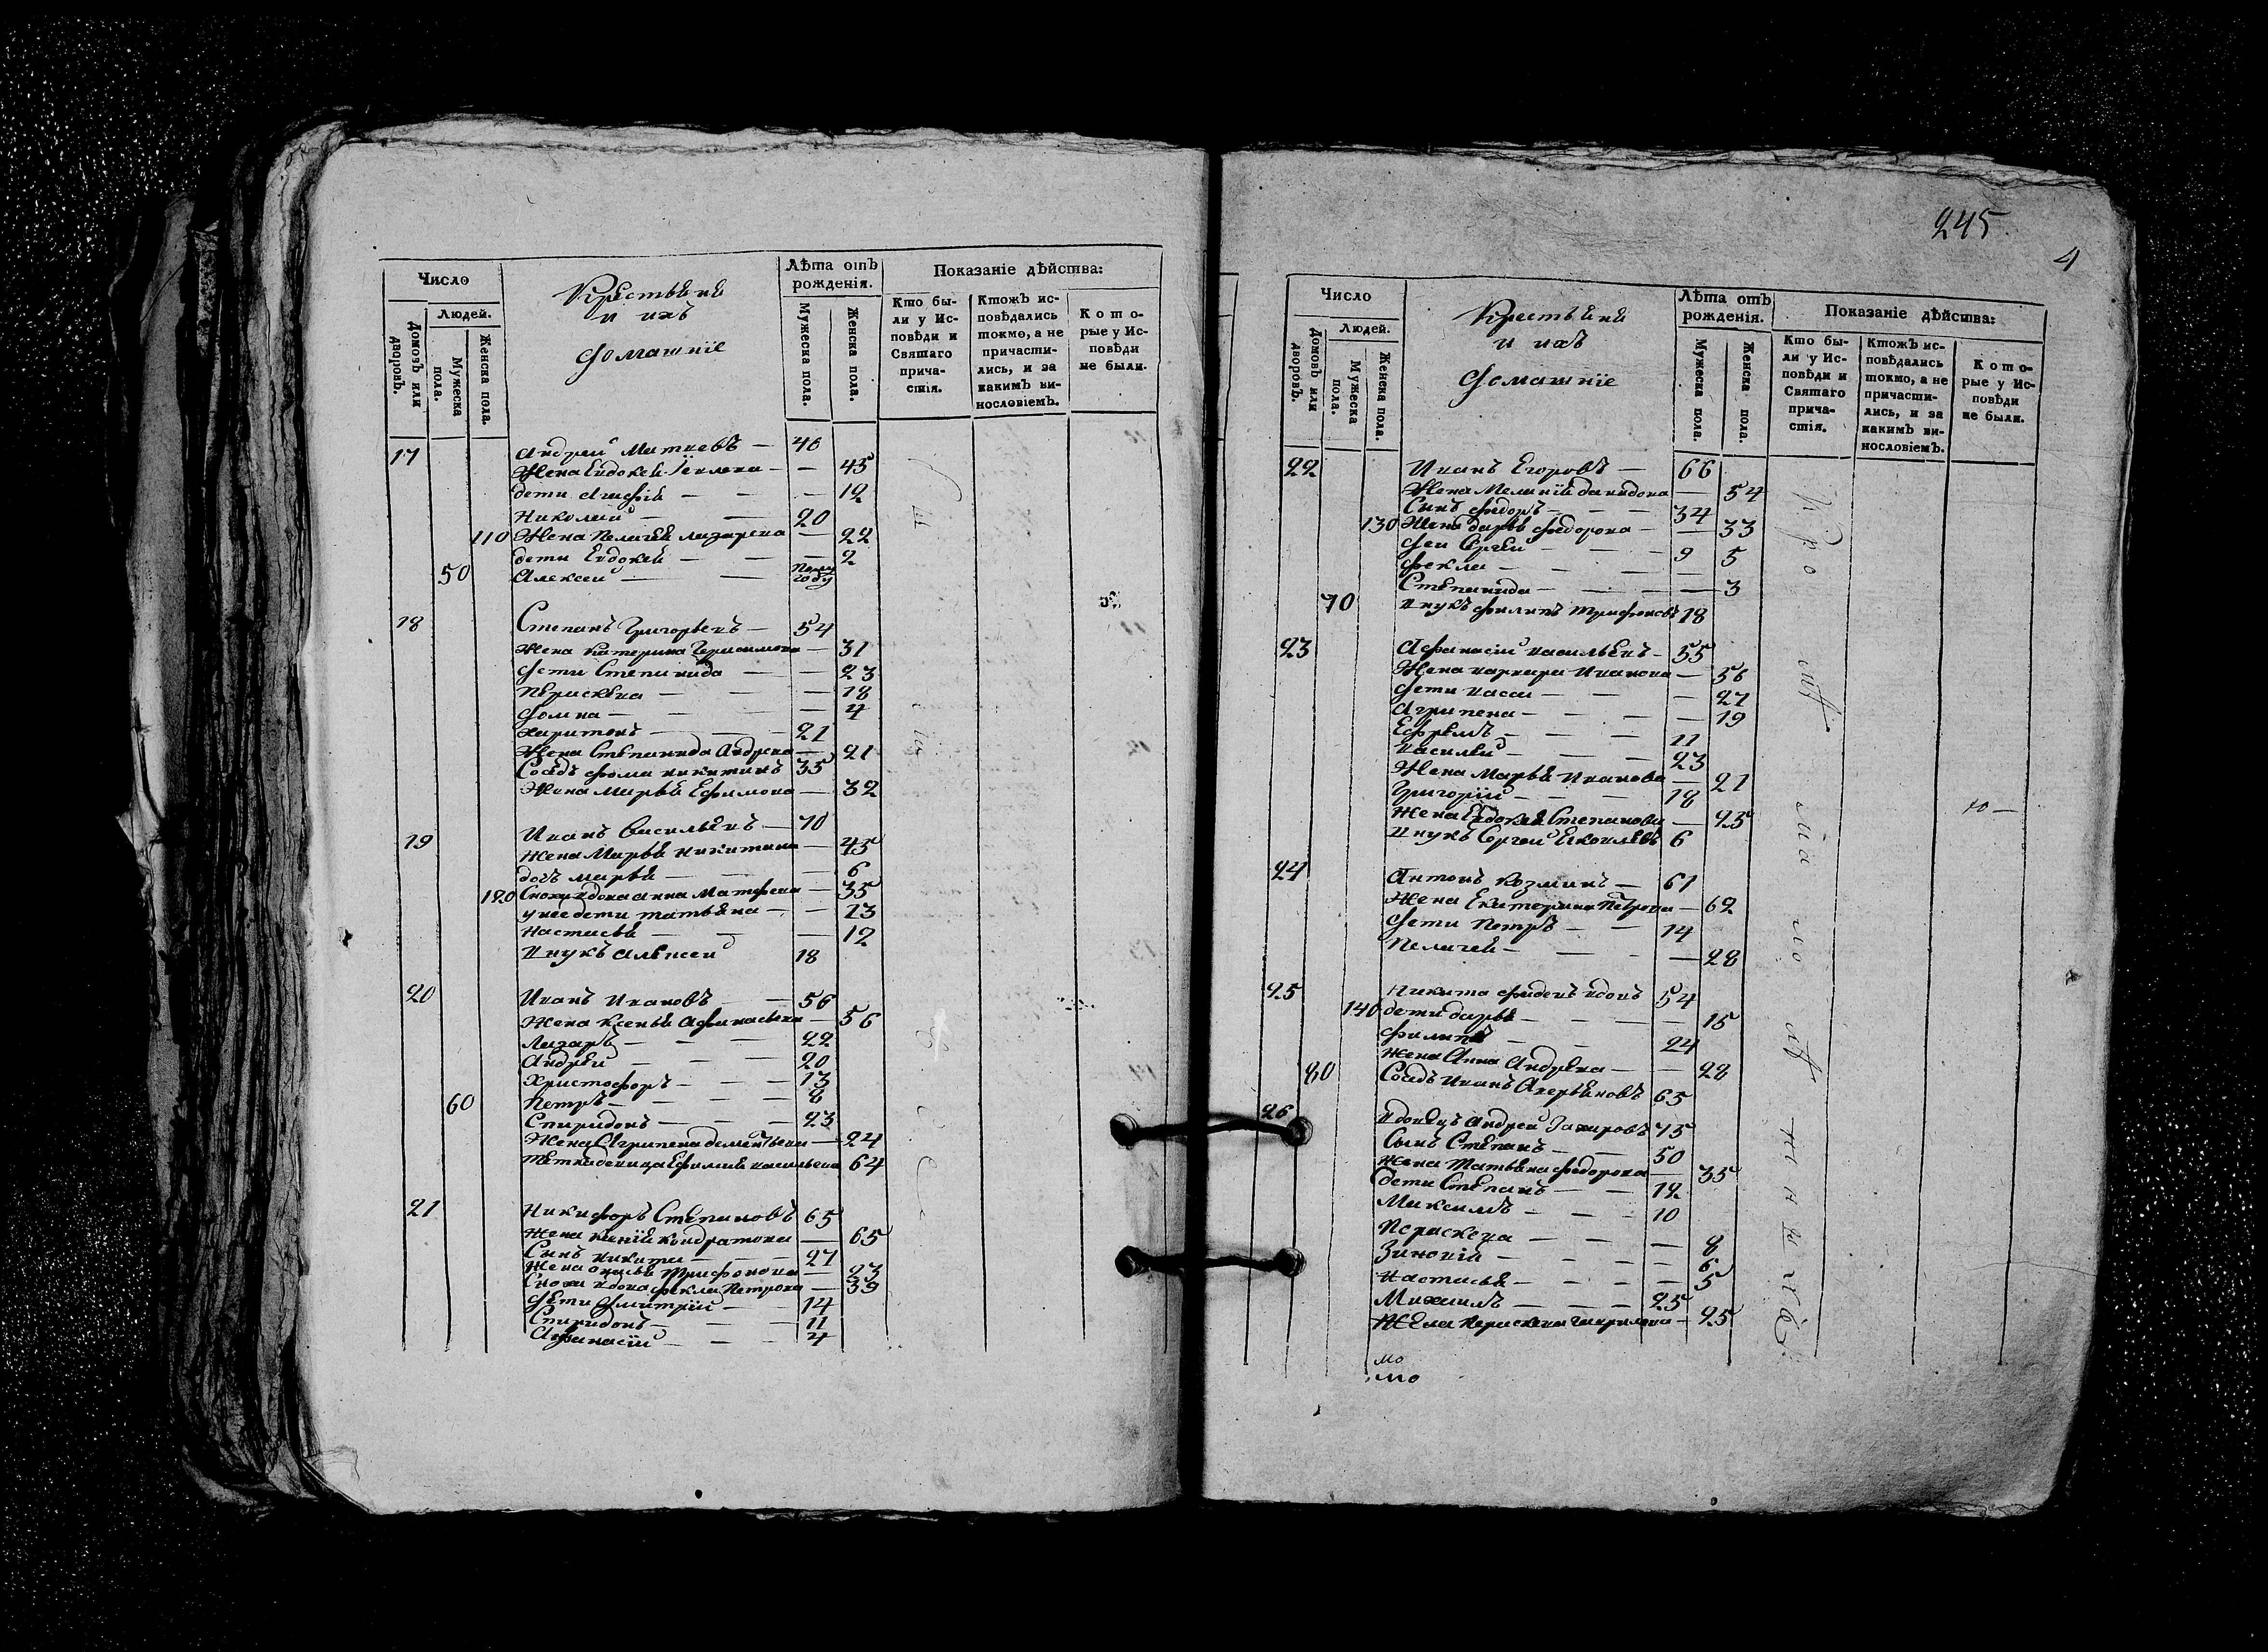 245
4
Число
Людей.
Домовъ или дворовъ.
Мужеска пола.
Женска пола.
Крестьяня
и ихъ
домашніе
Лѣта отъ рожденія.
Мужеска пола.
Женска пола.
Показаніе дѣйства:
Кто были у Исповѣди и Святаго причастія.
Ктожъ исповѣдались токмо, а не причастились, и за какимъ винословіемъ.
Которые у Исповѣди не были.
17 Андрей — 40
Жена Евдокея — — 45
дети — — 12
Николай — — 20
110 Жена Пелагея Лазарева — 22
дети Евдокея — — 2
50 Алексей — — полу году
18 Степанъ Григорьевъ — 54
Жена Катерина Герасимова — 31
дети Степанида — — 23
Параскева — — — 18
Домна — — — 4
Харитонъ — — — 21
Жена Степанида Андреева — 21
Соседъ Фома Никитинъ 35
Жена Марья Ефимова — 32
19 Иванъ Васильевъ — 70
Жена Марья Никитина — 45
дочь Марья — — — 6
120 Сноха вдова Анна Матфеева — 35
у нее дети Татьяна — — 13
Настасья — — — 12
Внукъ Алексей 18
20 Иванъ Ивановъ — — 56
Жена Ксенья Афанасьева — 56
Лазарь — — — 22
Андрей — — — 20
Христофоръ — — — 13
60 Петръ — — — 8
Спиридонъ — — — 23
Жена Агрипена Дементьева — 24
тетка девица Ефимия Васильева 64
21 Никифоръ Степановъ 65
Жена Кондратова — 65
Сынъ Никита — — 27
Жена Трифонова — 23
Сноха вдова Фекла Петрова — 39
Дети Дмитрій — — 14
Спиридонъ — — — 11
Афанасій — — — 4
Число
Людей.
Домовъ или дворовъ.
Мужеска пола.
Женска пола.
Крестьяня
и ихъ
домашніе
Лѣта отъ рожденія.
Мужеска пола.
Женска пола.
Показаніе дѣйства:
Кто были у Исповѣди и Святаго причастія.
Ктожъ исповѣдались токмо, а не причастились, и за какимъ винословіемъ.
Которые у Исповѣди не были.
22 Иванъ Егоровъ — 66
Жена Меланія Давидова — 54
Сынъ Федоръ — — — 34
130 Жена Дарья Федорова — — 33
дети Сергей — — — 9
Фекла — — — 5
Степанида — — — 3
70 Внукъ Филипъ Трифоновъ 18
23 Афанасій Васильевъ — 55
Жена Варвара Иванова — 56
Дети — — — 27
Агрипена — — — 19
Ефремъ — — — 11
Василей — — — 23
Жена Марья Иванова — 21
Григорій — — — 18
Жена Евдокея Степанова — 25
Внукъ Сергей 6
24 Антонъ Козминъ — 61
Жена Екатерина Петрова — 62
Дети Петръ — — 14
Пелагея — — — 28
25 Никита вдовъ 54
140 дети Дарья — — — 15
Филипъ — — 24
Жена Анна Андреева — — 28
80 Соседъ Иванъ 65
26 Вдовецъ Андрей 75
Сынъ Степанъ — — 50
Жена Татьяна Федорова — 35
дети Степанъ — — 12
Максимъ — — — 10
Параскева — — — 8
Зиновія — — — 6
Настасья — — — 5
Михаилъ — — — 25
Жена Параскева Гаврилова — 25
мо
мо